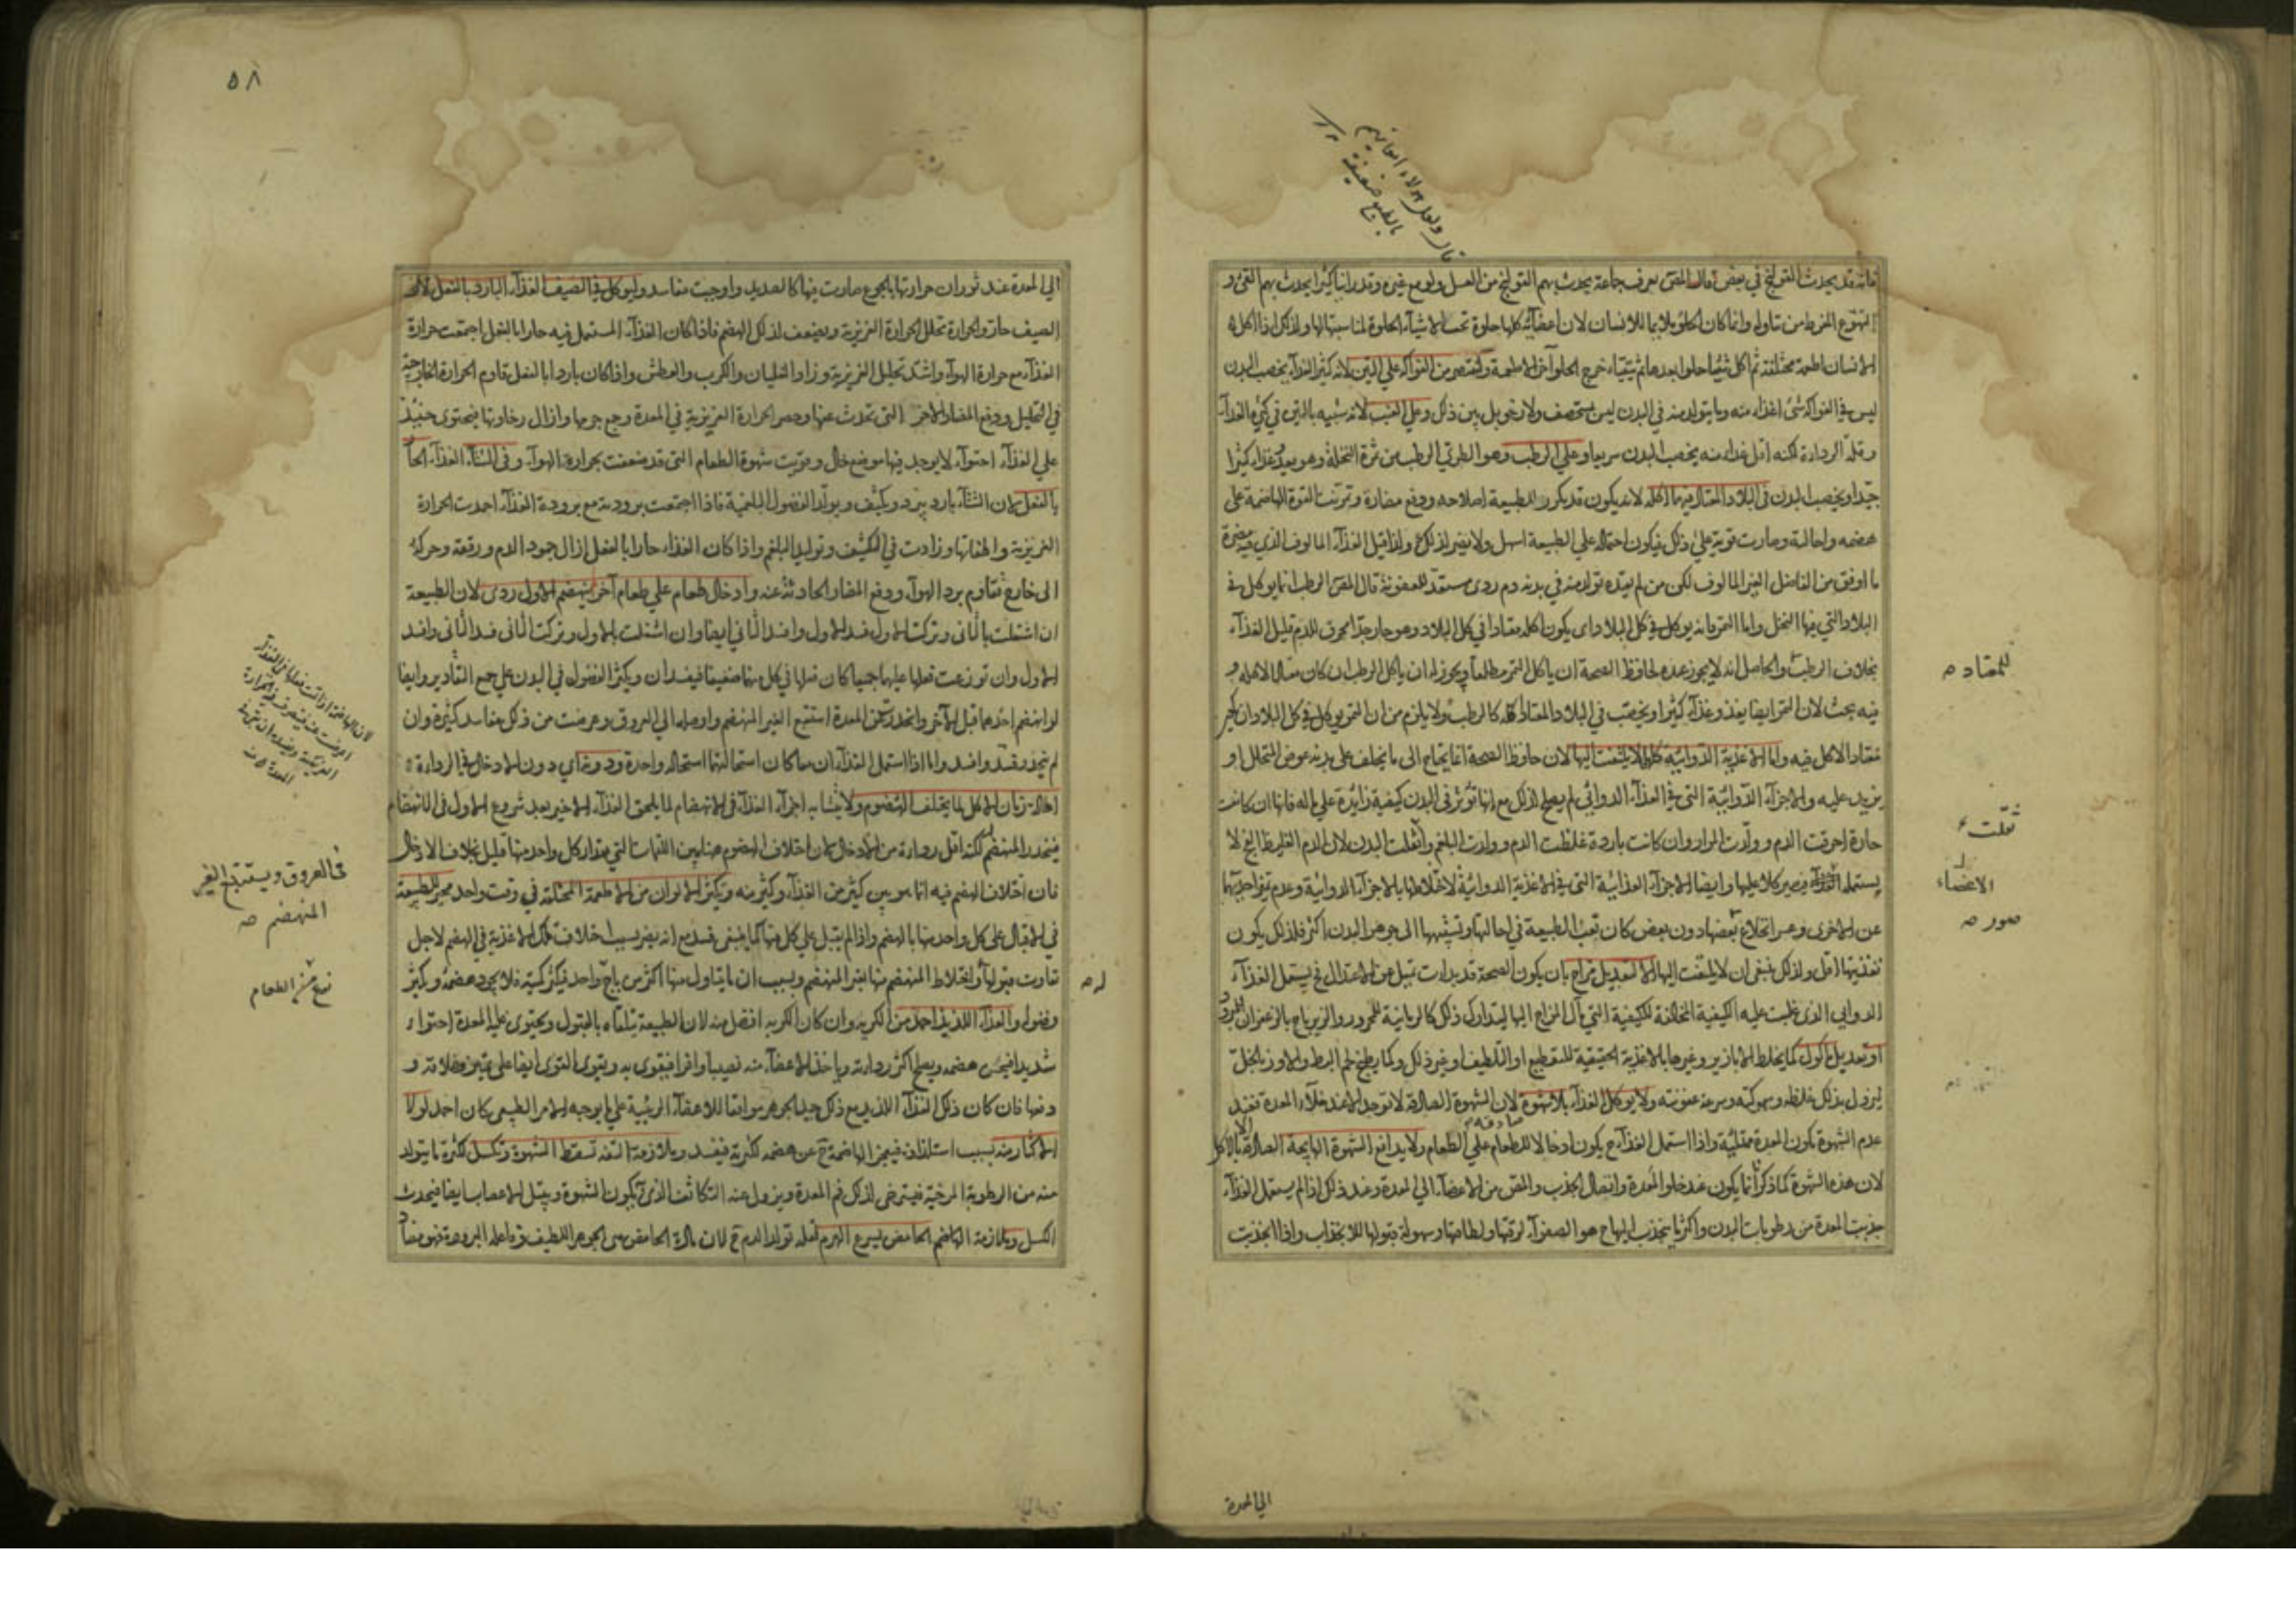 فانه قد يحدث القولنج في بعض قال المص نعرف جماعة يحدث بهم القولنج من العسل ولو مع غيره وقد راينا كثيرا يحدث بهم القئ و
التهوع المفرط من تناوله وانما كان الحلو ملايما للانسان لان اعضائه كلها حلوة تحب الاشيآء الحلوة لمناسبتها لها ولذلك اذا اكل
الانسان اطعمة مختلفة ثم اكل شيئا حلوا بعدها ثم يتقياء خرج الحلو آخر الاطعمة ويقتصر من الفواكه علي التين لانه كثير الغذآء يخصب البدن
ليس في الفواكه شئ اغذاء منه وما يتولد منه في البدن ليس بمستحصف ولا رخو بل بين ذلك وعلي العنب لانه شبيه بالتين في كثرة الغذآء
وقلة الرداءة لكنه اقل غذاء منه يخصب البدن سريعا وعلي الرطب وهو الطري الرطب من ثمرة النخلة وهو يغذو غذاء كثيرا
جيدا ويخصب البدن في البلاد المعتاد فيها اكله لانه يكون قد تكرر للطبيعة اصلاحه ودفع مضاره وتمرنت القوة الهاضمة علي
هضمه واحالته وصارت قوية علي ذلك فيكون احتماله علي الطبيعة اسهل ولا يضر لذلك ولذا قيل الغذآء المالوف الذي فيه مضرة
ما اوفق من الفاضل الغير المالوف لكن من لم يعتده تولد منه في بدنه دم ردي مستعد للعفونة قال المص الرطب انما يوكل في
البلاد التي فيها النخل واما التمر فانه يوكل في كل البلاد اي يكون اكله معتادا في كل البلاد وهو حار جدا محرق للدم قليل الغذآء
بخلاف الرطب والحاصل انه لا يجوز عنده لحافظ الصحة ان ياكل التمر مطلقا ويجوز له ان ياكل الرطب ان كان معتادا لاكله و
فيه بحث لان التمر ايضا يغذو غذآء كثيرا ويخصب في البلاد المعتاد اكله كالرطب ولا يلزم من ان التمر يوكل في كل البلاد ان يكون
معتاد الاكل فيه واما الاغذية الدوائية كلها لا يلتفت اليها لان حافظ الصحة انما يحتاج الى ما يخلف علي بدنه عوض المتحلل او
يزيد عليه والاجزآء الدوائية التي في الغذآء الدوائي لم يصلح لذلك مع انها تؤثر في البدن كيفية زايدة علي ماله فانها ان كانت
حارة احرقت الدم وولدت المرار وان كانت باردة غلظت الدم وولدت البلغم واثقلت البدن لان الدم الغليظ الفج لا
يستعمله فيصير كلا عليها وايضا الاجزآء الغذائية التي في الاغذية الدوائية لاختلاطها بالاجزآء الدوائية وعدم تميز احديهما
عن الاخرى وعسر انخلاع بعضها دون بعض كان تعب الطبيعة في احالتها وتشبيهها الى جوهر البدن اكثر فلذلك يكون
تغذيتها اقل ولذلك ينبغي ان لا يلتفت اليها الا لتعديل مزاج بان يكون الصحة قد بدات تميل عن الاعتدال فح يستعمل الغذآء
الدوايي الذي غلبت عليه الكيفية المخالفة للكيفية التي مال المزاج اليها ليتدارك ذلك كالرمانية للمحرور والزيرباج بالزعفران للمبرود
او تعديل ماكول كما يخلط الابازير وغيرها بالاغذية الحقيقية للتقطيع او التلطيف او غير ذلك وكما يطبخ لحم البط والاوز بالخل
ليزول بذلك غلظه وسهوكته وسرعة عفونته ولا يوكل الغذآء بلا شهوة لان الشهوة الصادقة لا توجد الا عند خلآء المعدة فعند
عدم الشهوة يكون المعدة ممتلئة واذا استعمل الغذآء ح يكون ادخالا للطعام علي الطعام ولا يدافع الشهوة الهايجة الصادقة بالاكل
لان هذه الشهوة كما ذكرنا انما يكون عند خلو المعدة واتصال الجذب والمص من الاعضآء الي المعدة وعند ذلك اذا لم يستعمل الغذآء
جذبت المعدة من رطوبات البدن واكثر ما ينجذب اليها ح هو الصفرآء لرقتها ولطافتها وسهولة قبولها للانجذاب واذا انجذبت
للمعتاد صه
ثقلت
الاعضاء
صور صه
الي المعدة
٥٨
الي المعدة عند ثوران حرارتها بالجوع صارت فيها كالصديد واوجبت مفاسد وليوكل في الصيف الغذآء البارد بالفعل لان
الصيف حار والحرارة تحلل الحرارة الغريزية ويضعف لذلك الهضم فاذا كان الغذآء المستعمل فيه حارا بالفعل اجتمعت حرارة
الغذآء مع حرارة الهوآء واشتد تحليل الغريزية وزاد الغليان والكرب والعطش واذا كان باردا بالفعل قاوم الحرارة الخارجية
في التحليل ودفع المضار الاخر التي تحدث عنها وحصر الحرارة الغريزية في المعدة وجمع جرمها وازال رخاوتها فيحتوى حينئذ
علي الغذآء احتوآء لا يوجد فيها موضع خال وقويت شهوة الطعام التي قد ضعفت بحرارة الهوآء وفى الشتآء الغذآء الحار
بالفعل لان الشتآء بارد يبرد ويكثف ويولد الفضول البلغمية فاذا اجتمعت برودته مع برودة الغذآء اخمدت الحرارة
الغريزية واطفاتها وزادت في التكثيف وتوليد البلغم واذا كان الغذاء حارا بالفعل ازال جمود الدم ورققه وحركه
الى خارج فقاوم برد الهوآء ودفع المضار الحادثة عنه وادخال طعام علي طعام آخر لم ينهضم الاول ردى لان الطبيعة
ان اشتغلت بالثاني وتركت الاول فسد الاول وافسد الثاني ايضا وان اشتغلت بالاول وتركت الثاني فسد الثاني وافسد
الاول وان توزعت فعلها عليهما جميعا كان فعلها في كل منهما ضعيفا فيفسدان ويكثر الفضول في البدن علي جميع التقادير وايضا
لو انهضم احدهما قبل الآخر وانحدر عن المعدة استتبع الغير المنهضم واوصله الي العروق وعرضت من ذلك مفاسد كثيرة وان
لم ينحدر فسد وافسد واما اذا استعمل الغذآءان معا كان استحالتهما استحالة واحدة ودونه اي دون الادخال في الرداءة
اطالة زمان الاكل بما يختلف الهضوم ولا يتشابه اجزآء الغذآء في الانهضام لما يلحق الغذآء الاخير بعد شروع الاول في الانهضام
فينحدر المنهضم لكنه اقل رداءة من الادخال لان اختلاف الهضوم هنا بين اللقمات التي مقدار كل واحد منها قليل بخلاف الادخال
فان اختلاف الهضم فيه انما هو بين كثير من الغذآء وكثير منه وتكثير الالوان من الاطعمة المختلفة في وقت واحد محير للطبيعة
في الاقبال علي كل واحد منها بالهضم واذا لم يقبل علي كل منها كما ينبغي فسد مع انه يضر بسبب اختلاف تلك الاغذية في الهضم لاجل
تفاوت قبولها واختلاط المنهضم منها بغير المنهضم وبسبب ان ما يتناول منها اكثر من باج واحد فيكثر كميته فلا يجود هضمه ويكثر
فضوله والغذآء اللذيذ احمد من الكريه وان كان الكريه افضل منه لان الطبيعة يتلقاه بالقبول ويحتوى عليه المعدة احتواء
شديدا فيحسن هضمه ويصلح اكثر رداءته وياخذ الاعضآء منه نصيبا وافرا فيقوى به ويقوى القوى ايضا علي تمييز فضلاته و
دفعها فان كان ذلك الغذآء اللذيذ مع ذلك جيد الجوهر موافقا للاعضآء الرئيسية علي ما يوجبه الامر الطبيعي كان احمد لولا
الاكثار منه بسبب استلذاذه فيعجز الهاضمة ح عن هضمه لكثرته فيفسد وملازمة التفه تسقط الشهوة وتكسل لكثرة ما يتولد
منه من الرطوبة المرخية فيسترخي لذلك فم المعدة ويزول عنه التكاثف الذي به يكون الشهوة ويبتل الاعصاب ايضا فيحدث
الكسل وملازمة الحامض يسرع الهرم لقلة تولد الدم ح لان مادة الحامض هي الجوهر اللطيف وفاعله البرودة فهو مضاد
فى العروق ويستتبع الغير
المنهضم صه